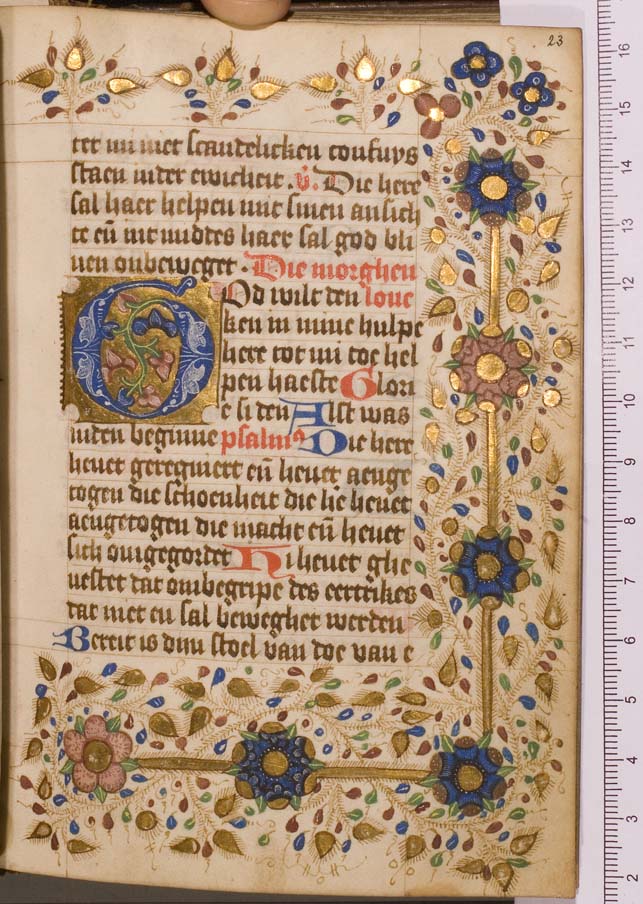 23
ter mi niet scandelicken confuys
staen inder ewicheit. v. Die here
sal haer helpen mit sinen ansich
te en̄ int middes haer sal god bli
uen onbeweget. Die morghen
God wilt den loue
ken in mine hulpe
here tot mi toe hel
pen haeste Glori
e si den Alst was
inden beginne psalm Die here
heuet geregniert en̄ heuet aenge
togen die schoenheit die he heuet
aengetogen die macht en̄ heuet
sich omgegordet Hi heuet ghe
uestet dat ombegripe des eertrikes
dat niet en sal beweghet werden
Bereit is dijn stoel van doe van e
16
15
14
13
12
11
10
9
8
7
6
5
4
3
2